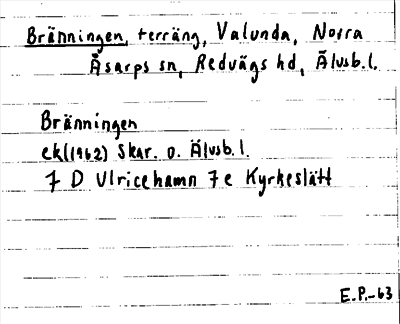 Bränningen, terräng, Valunda, Norra
Åsarps sn, Redvägs hd, Älvsb. l.
Bränningen
ek (1962) Skar. o. Älvsb. l.
7 D Ulricehamn 7 e Kyrkeslätt
E.P.-63